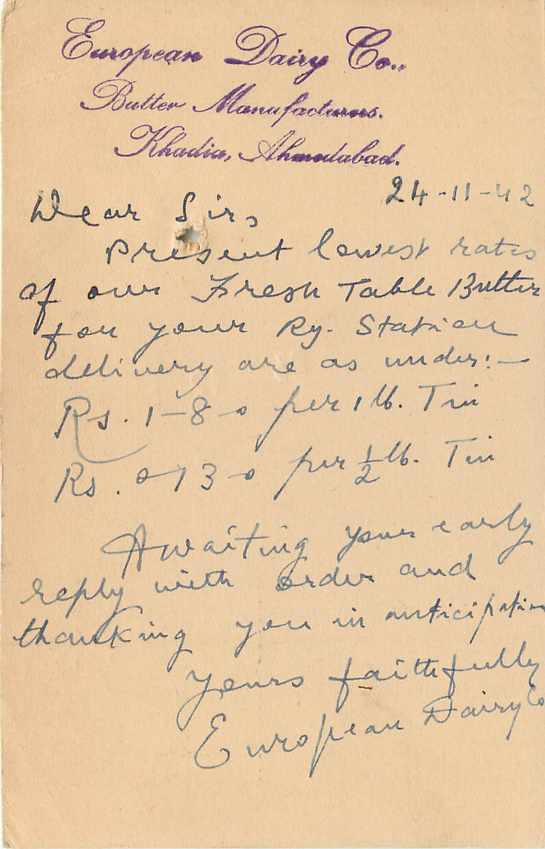 European Dairy Co.,
Butter Manufacturers.
Khadia, Ahmedabad.
24-11-42
Dear Sirs,
Present lowest rates
of our Fresh Table Butter
for your Ry. Station
delivery are as under:-
Rs. 1-8-0 per 1 lb. Tin
Rs. 0-13-0 per ½ lb. Tin
Awaiting your early
reply with order and
thanking you in anticipation
Yours faithfully
European Dairy Co